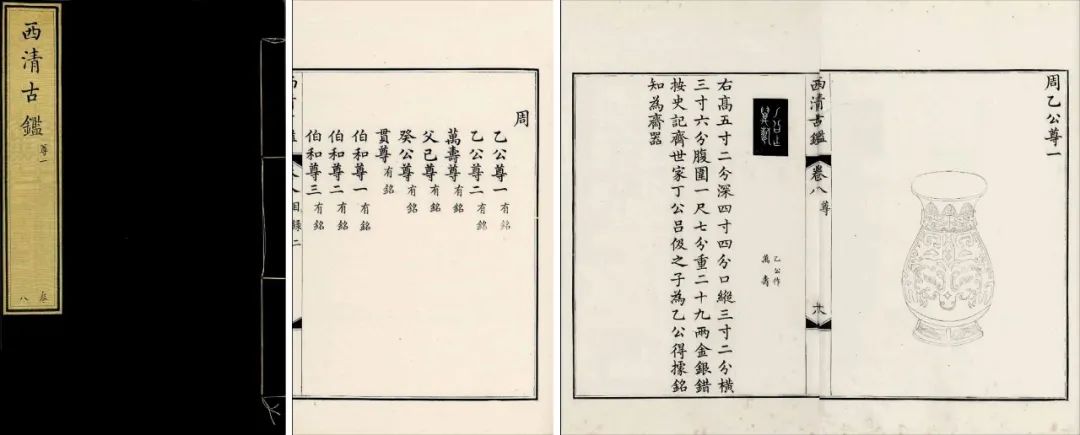 西清古鑑
尊一
卷八
周
乙公尊一有銘
乙公尊二有銘
萬壽尊有銘
父己尊有銘
癸公尊有銘
貫尊有銘
伯和尊一有銘
伯和尊二有銘
伯和尊三有銘
目錄二
周乙公尊一
西清古鑑
卷八
尊
乙公作
萬壽
右高五寸二分深四寸四分口縱三寸二分橫
三寸六分腹圍一尺七分重二十九兩金銀錯
按史記齊世家丁公呂伋之子為乙公得據銘
知為齊器